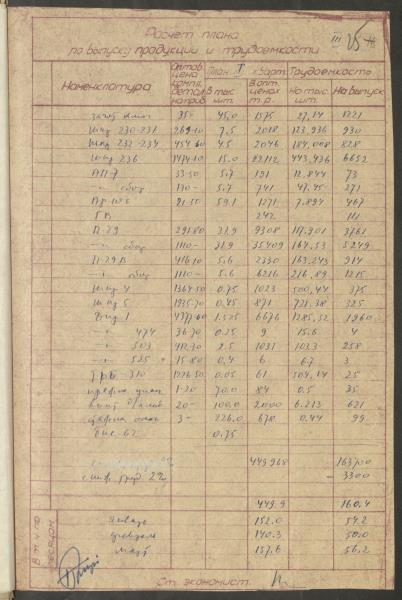 Расчет плана
по выпуску продукции и трудоемкости
Номенклатура Оптов. цена компл. детал. на приб. План I кварт. Трудоемкость
в тыс. шт. В опт. ценах т.р. На тыс. шт. На выпуск
35- 45,0 1575 27,14 1221
шкд 230-231 269-10 7,5 2018 123,936 930
шкд 232-234 454-60 4,5 2046 184,008 828
шкд 236 1474-10 15,0 22112 443,436 6652
33-50 5,7 191 12,844 73
—"— сбор 130- 5,7 741 47,45 271
21-50 59,1 1271 7,894 467
242 111
П-29 291-80 31,9 9308 117,901 3761
—"— сбор 1110- 31,9 35409 164,53 5249
П-29 В 416-10 5,6 2330 163,243 914
—"— сбор 1110- 5,6 6216 216,89 1215
шкд 4 1364-50 0,75 1023 500,44 375
шкд 5 1935-70 0,45 871 721,38 325
Вид 1 4377-60 1,525 6676 1285,52 1960
—"— 474 36-70 0,25 9 15,6 4
—"— 503 412-30 2,5 1031 103,3 258
—"— 525 15-80 0,4 6 6,7 3
1226-50 0,05 61 504,14 25
1-20 70,0 84 0,5 35
20- 100,0 2000 6,213 621
3- 226,0 678 0,44 99
0,75
449968 163700
с инж. труд. 2% — 3300
449,9 160,4
В т.ч. по месяцам
январь 152,0 54,2
февраль 140,3 50,0
март 157,6 56,2
Ст. экономист